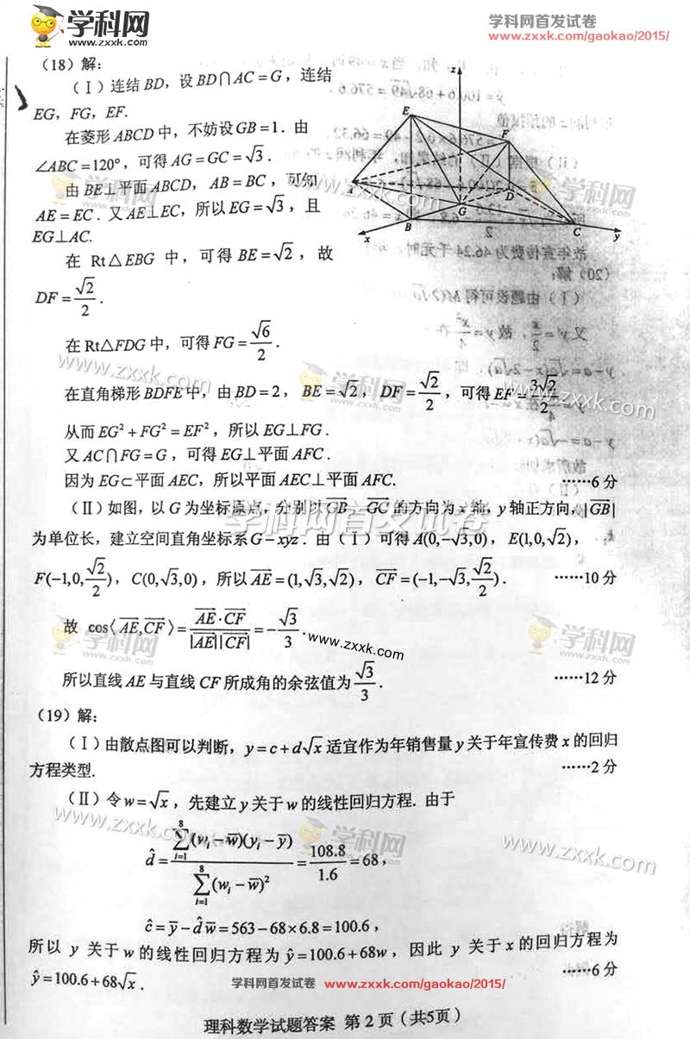 学科网
www.zxxk.com
学科网首发试卷
www.zxxk.com/gaokao/2015/
(18)解:
(Ⅰ)连结 BD,设 BD∩AC=G,连结
EG,FG,EF.
在菱形 ABCD 中,不妨设 GB=1.由
∠ABC=120°,可得 AG=GC=√3.
由 BE⊥平面 ABCD,AB=BC,可知
AE=EC.又 AE⊥EC,所以 EG=√3,且
EG⊥AC.
在 Rt△EBG 中,可得 BE=√2,故
DF=√2/2.
在 Rt△FDG 中,可得 FG=√6/2.
在直角梯形 BDFE 中,由 BD=2,BE=√2,DF=√2/2,可得 EF=3√2/2.
从而 EG²+FG²=EF²,所以 EG⊥FG.
又 AC∩FG=G,可得 EG⊥平面 AFC.
因为 EG⊂平面 AEC,所以平面 AEC⊥平面 AFC. ……6 分
(Ⅱ)如图,以 G 为坐标原点,分别以 GB,GC 的方向为 x 轴,y 轴正方向,|GB|
为单位长,建立空间直角坐标系 G-xyz.由(Ⅰ)可得 A(0,-√3,0),E(1,0,√2),
F(-1,0,√2/2),C(0,√3,0),所以 AE=(1,√3,√2),CF=(-1,-√3,√2/2). ……10 分
故 cos〈AE,CF〉=AE·CF/|AE||CF|=-√3/3.
所以直线 AE 与直线 CF 所成角的余弦值为 √3/3. ……12 分
(19)解:
(Ⅰ)由散点图可以判断,y=c+d√x 适宜作为年销售量 y 关于年宣传费 x 的回归
方程类型. ……2 分
(Ⅱ)令 w=√x,先建立 y 关于 w 的线性回归方程.由于
d̂=∑(i=1→8)(wᵢ-w̄)(yᵢ-ȳ)/∑(i=1→8)(wᵢ-w̄)²=108.8/1.6=68,
ĉ=ȳ-d̂w̄=563-68×6.8=100.6,
所以 y 关于 w 的线性回归方程为 ŷ=100.6+68w,因此 y 关于 x 的回归方程为
ŷ=100.6+68√x. ……6 分
学科网首发试卷 www.zxxk.com/gaokao/2015/
理科数学试题答案 第 2 页(共5页)
z
E
F
D
G
B
C
x
y